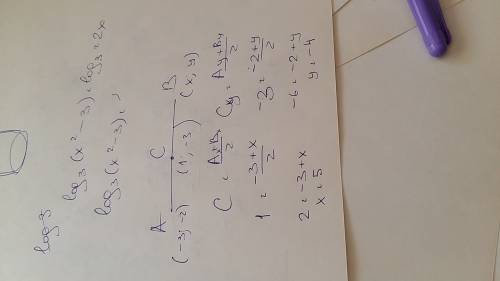 log 3
log₃(x² - 3) = log₃ 2x
log₃(x² - 3) =
A C B
(-3; -2) (1, -3) (x, y)
C = A+B/2 Cy = Ay+By/2
1 = -3+x/2 -3 = -2+y/2
2 = -3+x -6 = -2+y
x = 5 y = -4